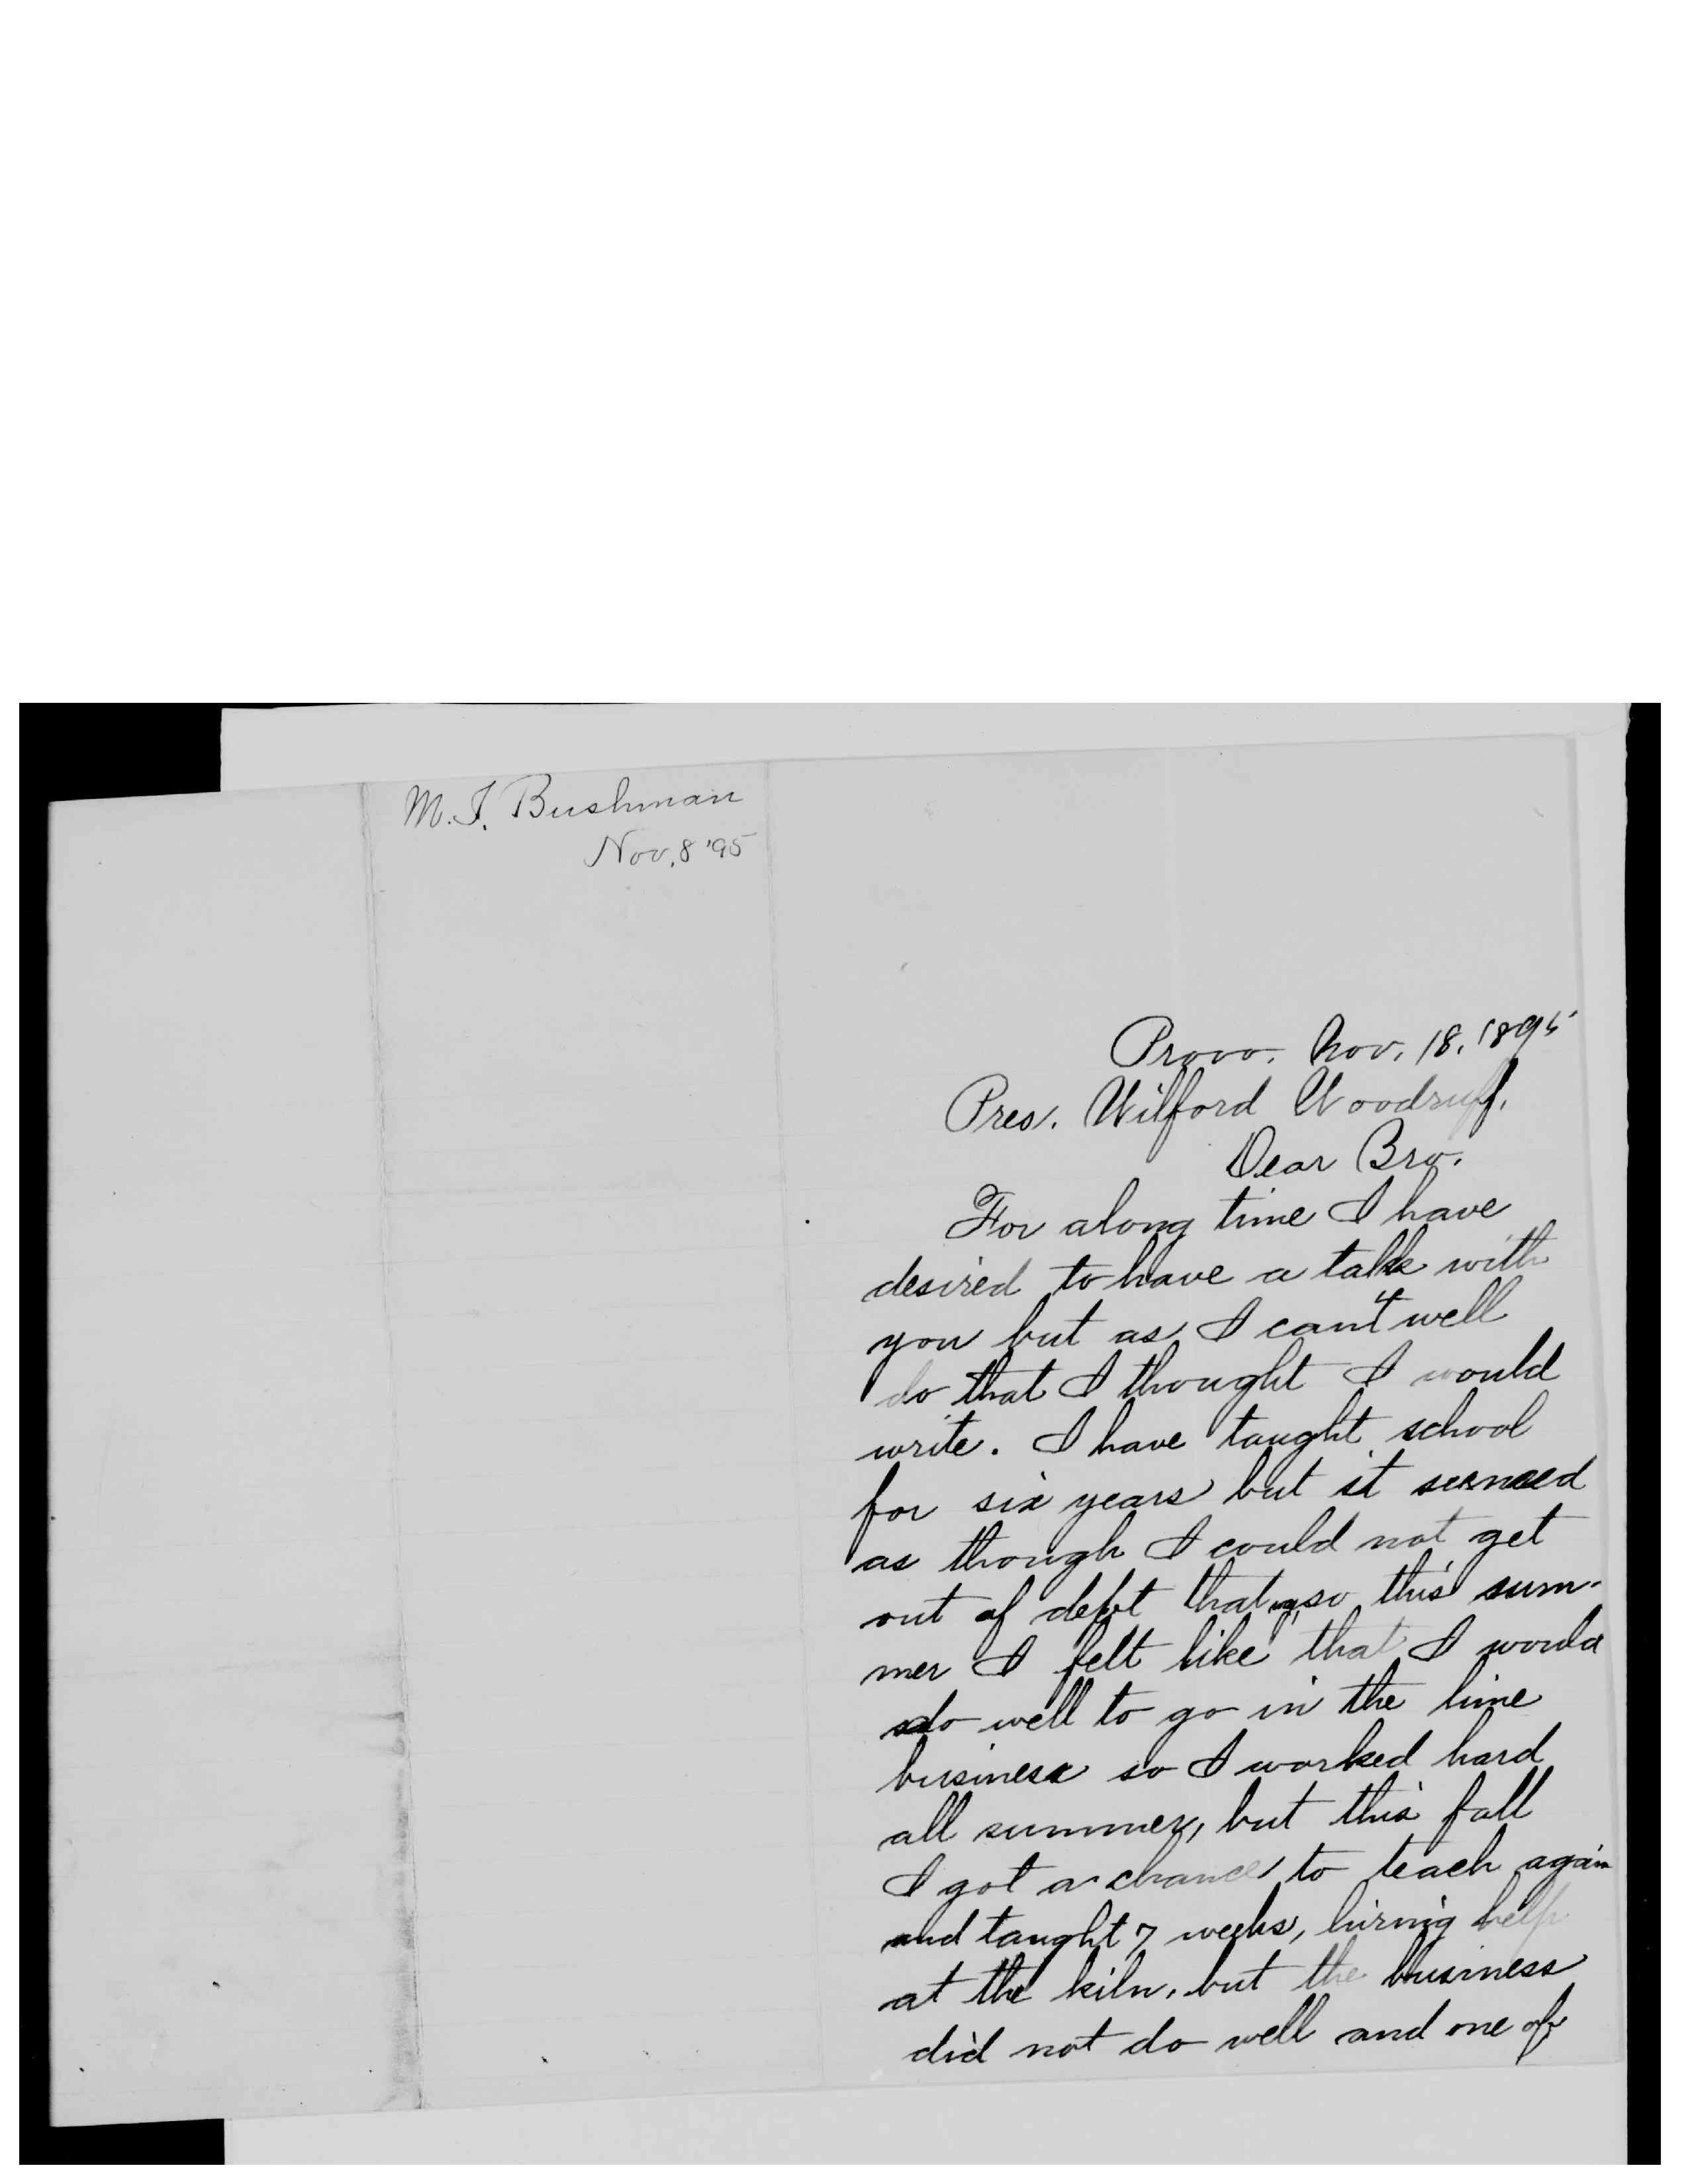 M. I. Bushman
Nov. 8 '95
Provo. Nov. 18. 1895
Pres. Wilford Woodruff.
Dear Bro.
For along time I have
desired to have a talk with
you but as I can't well
do that I thought I would
write. I have taught school
for six years but it seemed
as though I could not get
out of debt that way so this sum-
mer I felt like that I would
do well to go in the lime
business so I worked hard
all summer, but this fall
I got a chance to teach again
and taught 7 weeks, hiring help
at the kiln, but the business
did not do well and one of